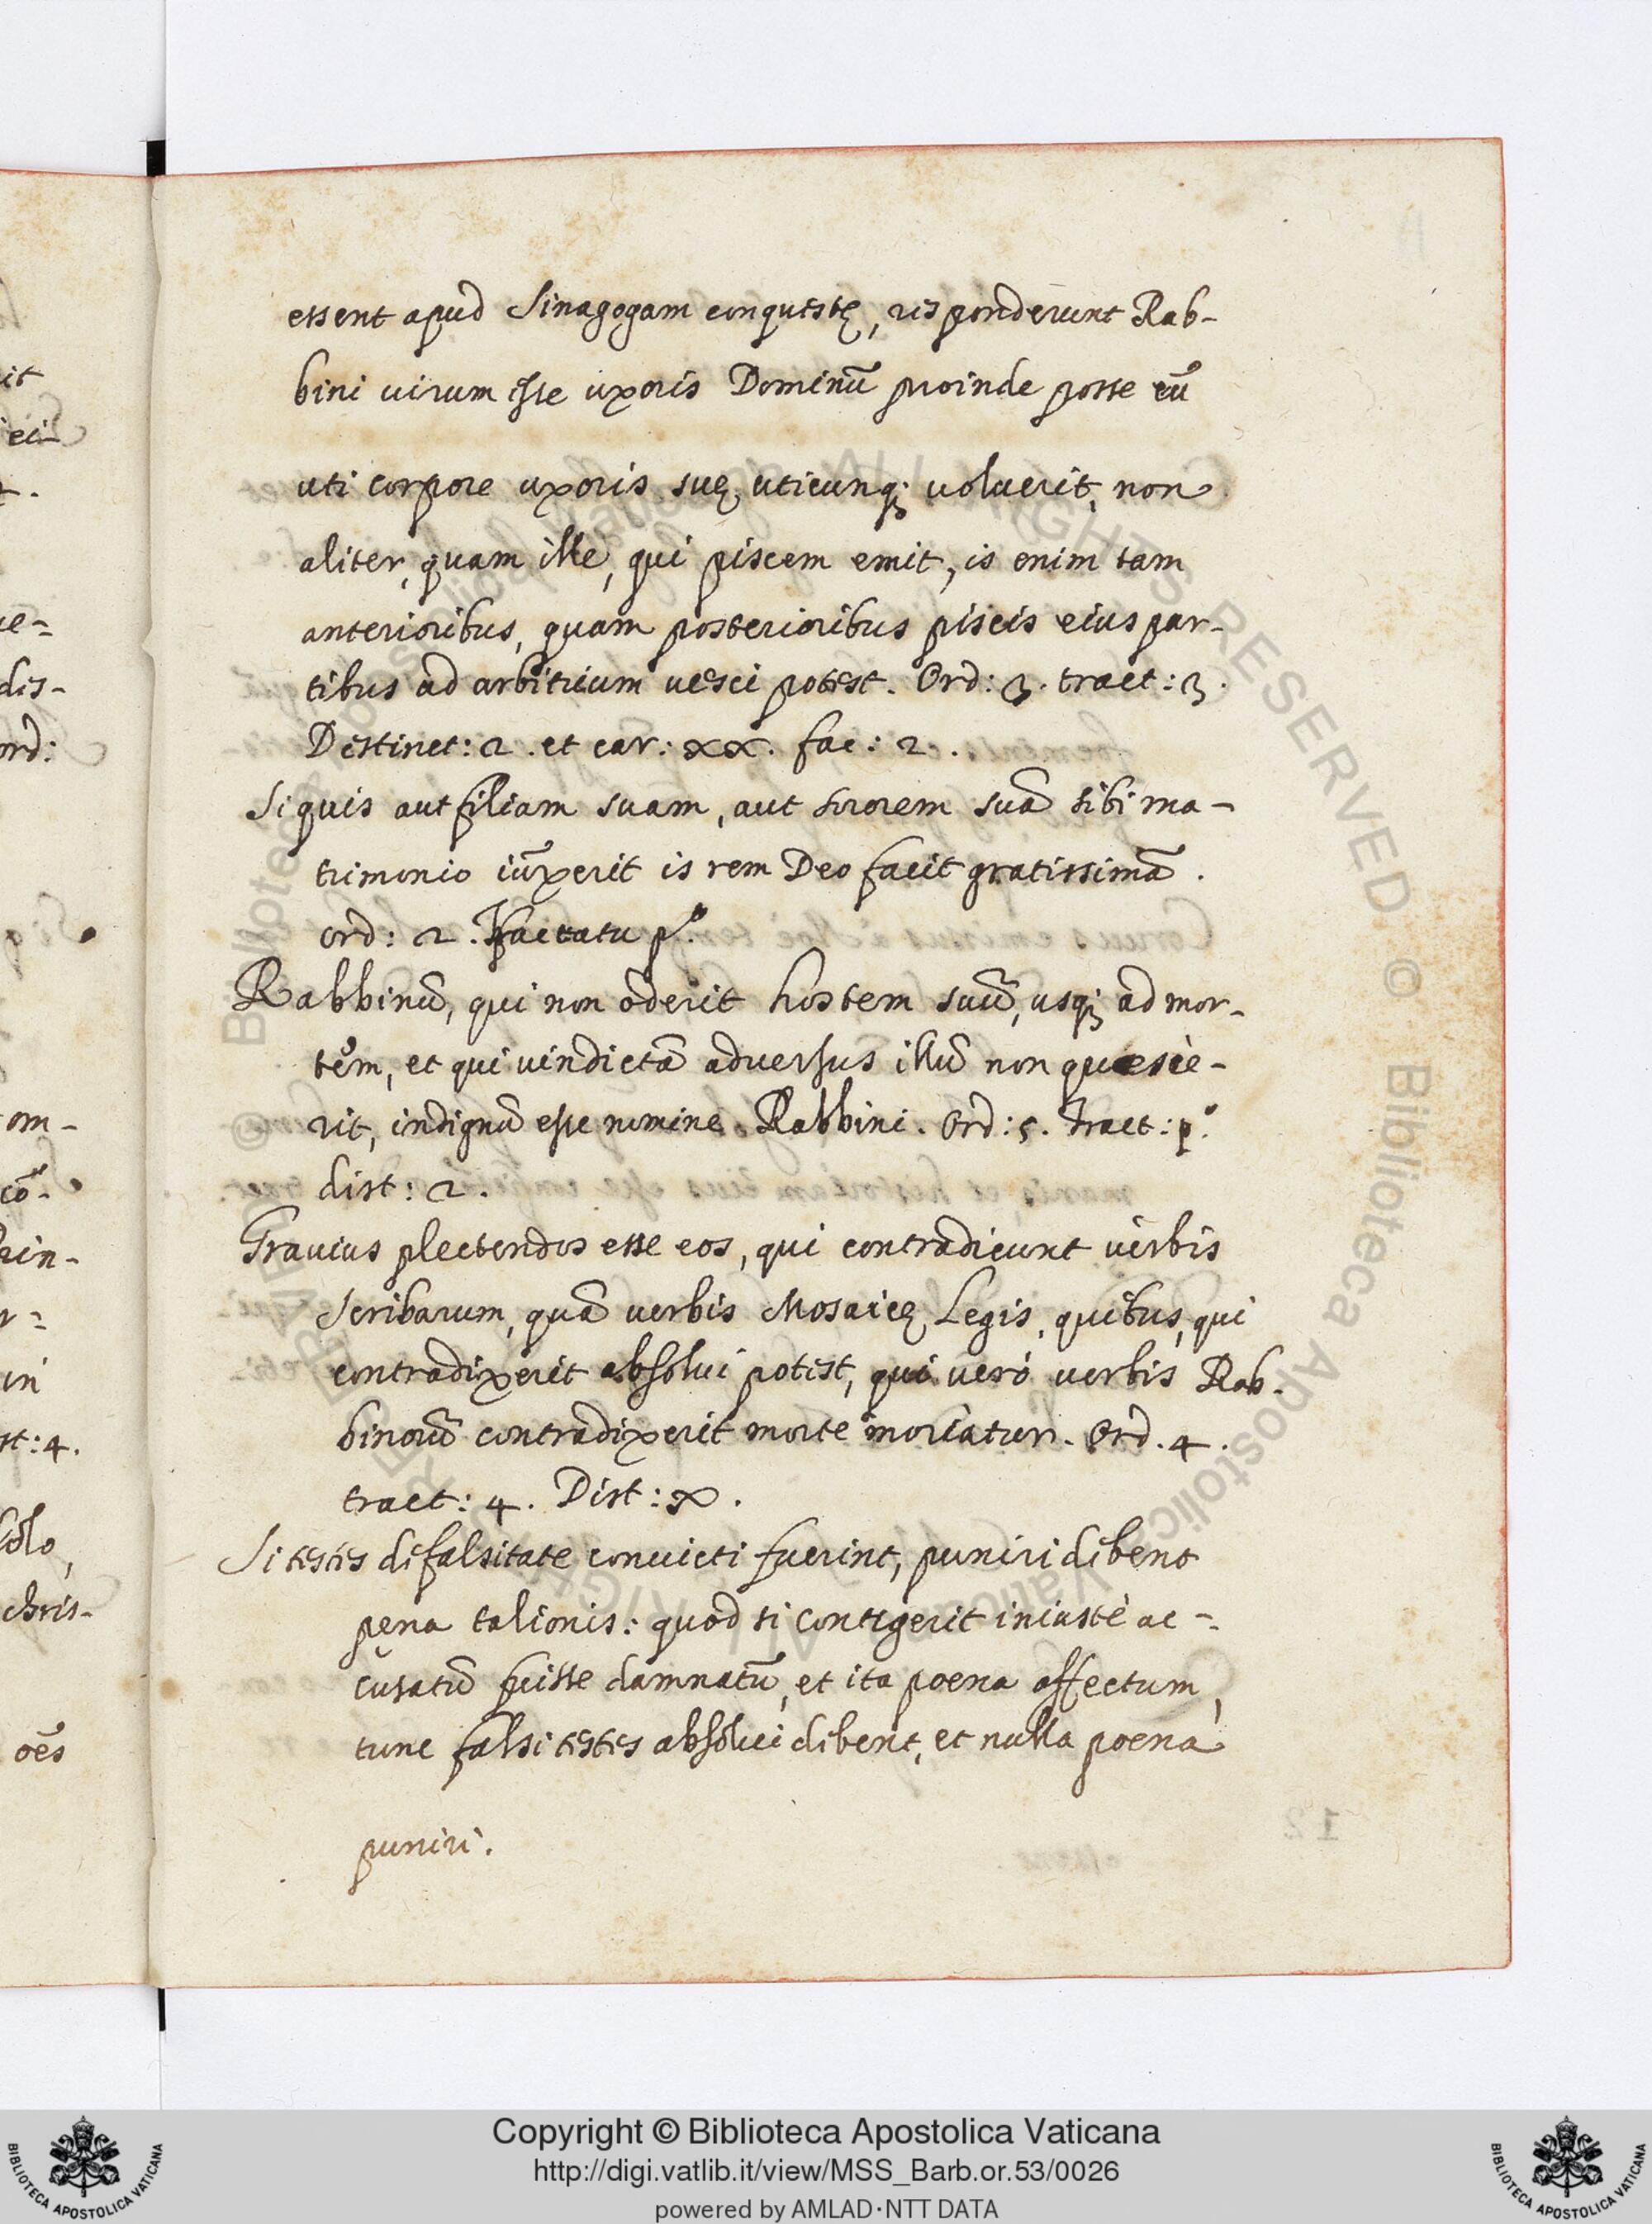 essent apud Sinagogam conquestę, responderunt Rab-
bini uirum esse uxoris Dominū proinde posse eū
uti corpore uxoris suę, uticunq; uoluerit, non
aliter, quam ille, qui piscem emit, is enim tam
anterioribus, quam posterioribus piscis eius par-
tibus ad arbitrium uesci potest. Ord: 3. tract: 3.
Distinct: 2. et car: xx. fac: 2.
Si quis aut filiam suam, aut sororem suā sibi ma-
trimonio iūxerit is rem Deo facit gratissimā.
ord: 2. Tractatu p.º
Rabbinū, qui non oderit hostem suū, usq; ad mor-
tem, et qui uindictā adversus illū non quesie-
rit, indignū esse nomine Rabbini. Ord: 5. Tract: p.º
dist: 2.
Grauius plectendos esse eos, qui contradicunt uerbis
Scribarum, quā uerbis Mosaicę Legis, quibus, qui
contradixerit absolui potest, qui uerò uerbis Rab-
binorū contradixerit morte moriatur. Ord. 4.
tract: 4. Dist: x.
Si testes de falsitate conuicti fuerint, puniri debent
pęna talionis: quod si contigerit iniustè ac-
cusatū fuisse damnatū, et ita poena affectum,
tunc falsi testes absolui debent, et nulla poena
puniri.
it
eci-
2.
ue-
dis-
ord:
om-
cō-
rin-
r-
in
st: 4.
solo,
chris-
oēs
Copyright © Biblioteca Apostolica Vaticana
http://digi.vatlib.it/view/MSS_Barb.or.53/0026
powered by AMLAD•NTT DATA
BIBLIOTECA APOSTOLICA VATICANA
BIBLIOTECA APOSTOLICA VATICANA